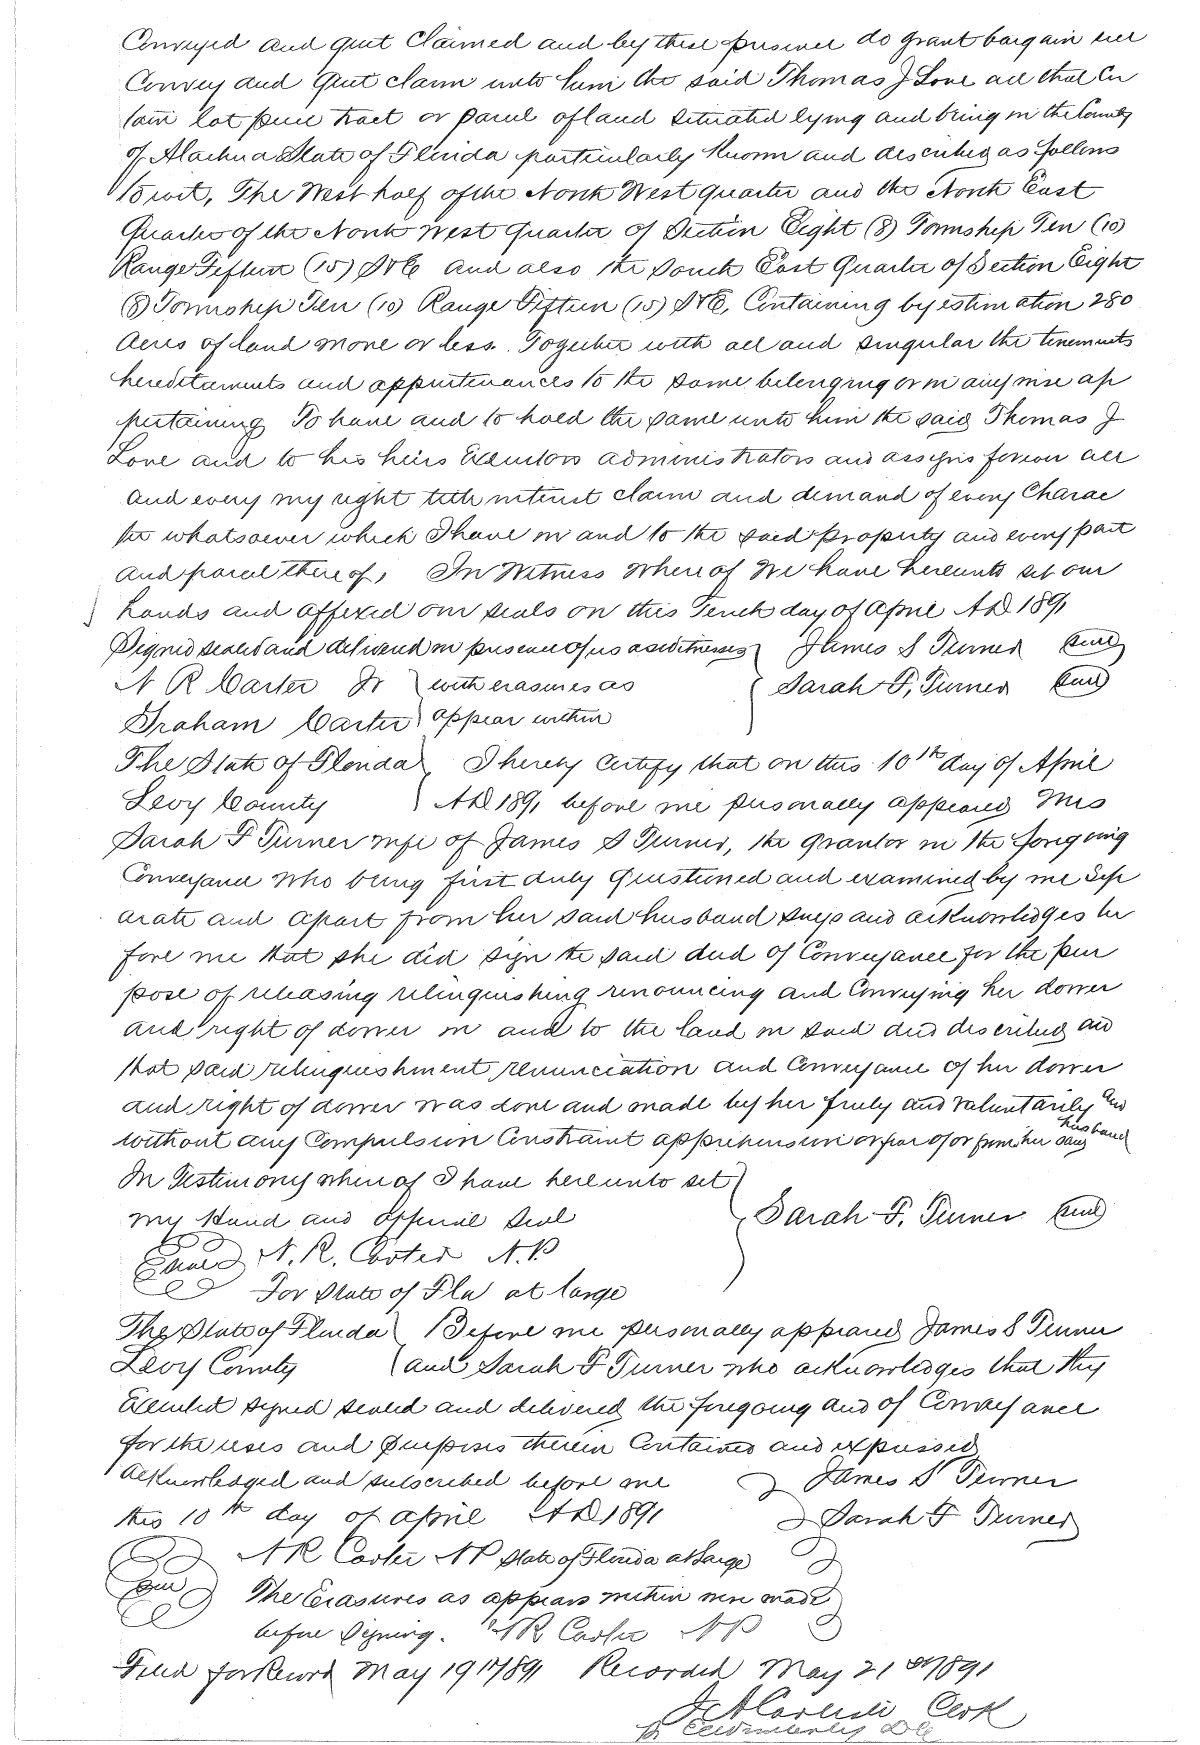 Conveyed and quit Claimed and by these presence do grant bargain sell
Convey and Quit claim unto him the said Thomas J Love all that Cer
tain lot piece tract or parcel of land situated lying and being in the County
of Alachua State of Florida particularly known and described as follows
to wit, The West half of the North West quarter and the North East
Quarter of the North West quarter of Section Eight (8) Township Ten (10)
Range Fifteen (15) S & E and also the South East Quarter of Section Eight
(8) Township Ten (10) Range Fifteen (15) S & E, Containing by estimation 280
Acres of land more or less. Together with all and singular the tenements
hereditaments and appurtenances to the same belonging or in any wise ap
pertaining To have and to hold the same unto him the said Thomas J
Love and to his heirs Executors administrators and assigns forever all
and every my right title interest claim and demand of every Charac
ter whatsoever which I have in and to the said property and every part
and parcel there of, In Witness Where of We have hereunto set our
hands and affixed our seals on this Tenth day of April A.D. 1891
Signed sealed and delivered in presence of us as witnesses James S Turner seal
N R Carter Jr with erasures as Sarah F. Turner seal
Graham Carter appear within
The State of Florida I hereby certify that on this 10th day of April
Levy County A.D. 1891 before me personally appeared Mrs
Sarah F Turner wife of James S Turner, the grantor in the foregoing
Conveyance who being first duly Questioned and examined by me Sep
arate and apart from her said husband says and acknowledges be
fore me that she did sign the said deed of Conveyance for the pur
pose of releasing relinquishing renouncing and Conveying her dower
and right of dower in and to the land in said deed described and
that said relinquishment, renunciation and Conveyance of her dower
and right of dower was done and made by her freely and voluntarily and
without any Compulsion Constraint apprehension or fear of or from her said husband
In Testimony where of I have here unto set
my Hand and official Seal Sarah F. Turner seal
Seal N. R. Carter N.P
For State of Fla at large
The State of Florida Before me personally appeared James S Turner
Levy County and Sarah F Turner who acknowledges that they
Executed signed sealed and delivered the foregoing and of Conveyance
for the uses and purposes therein Contained and expressed
Acknowledged and subscribed before me James S Turner
this 10th day of April A.D. 1891 Sarah F Turner
N R Carter N P State of Florida at Large
Seal The Erasures as appears within were made
before Signing. N R Carter N P
Filed for Record May 19th 1891 Recorded May 21st 1891
Clerk
D C